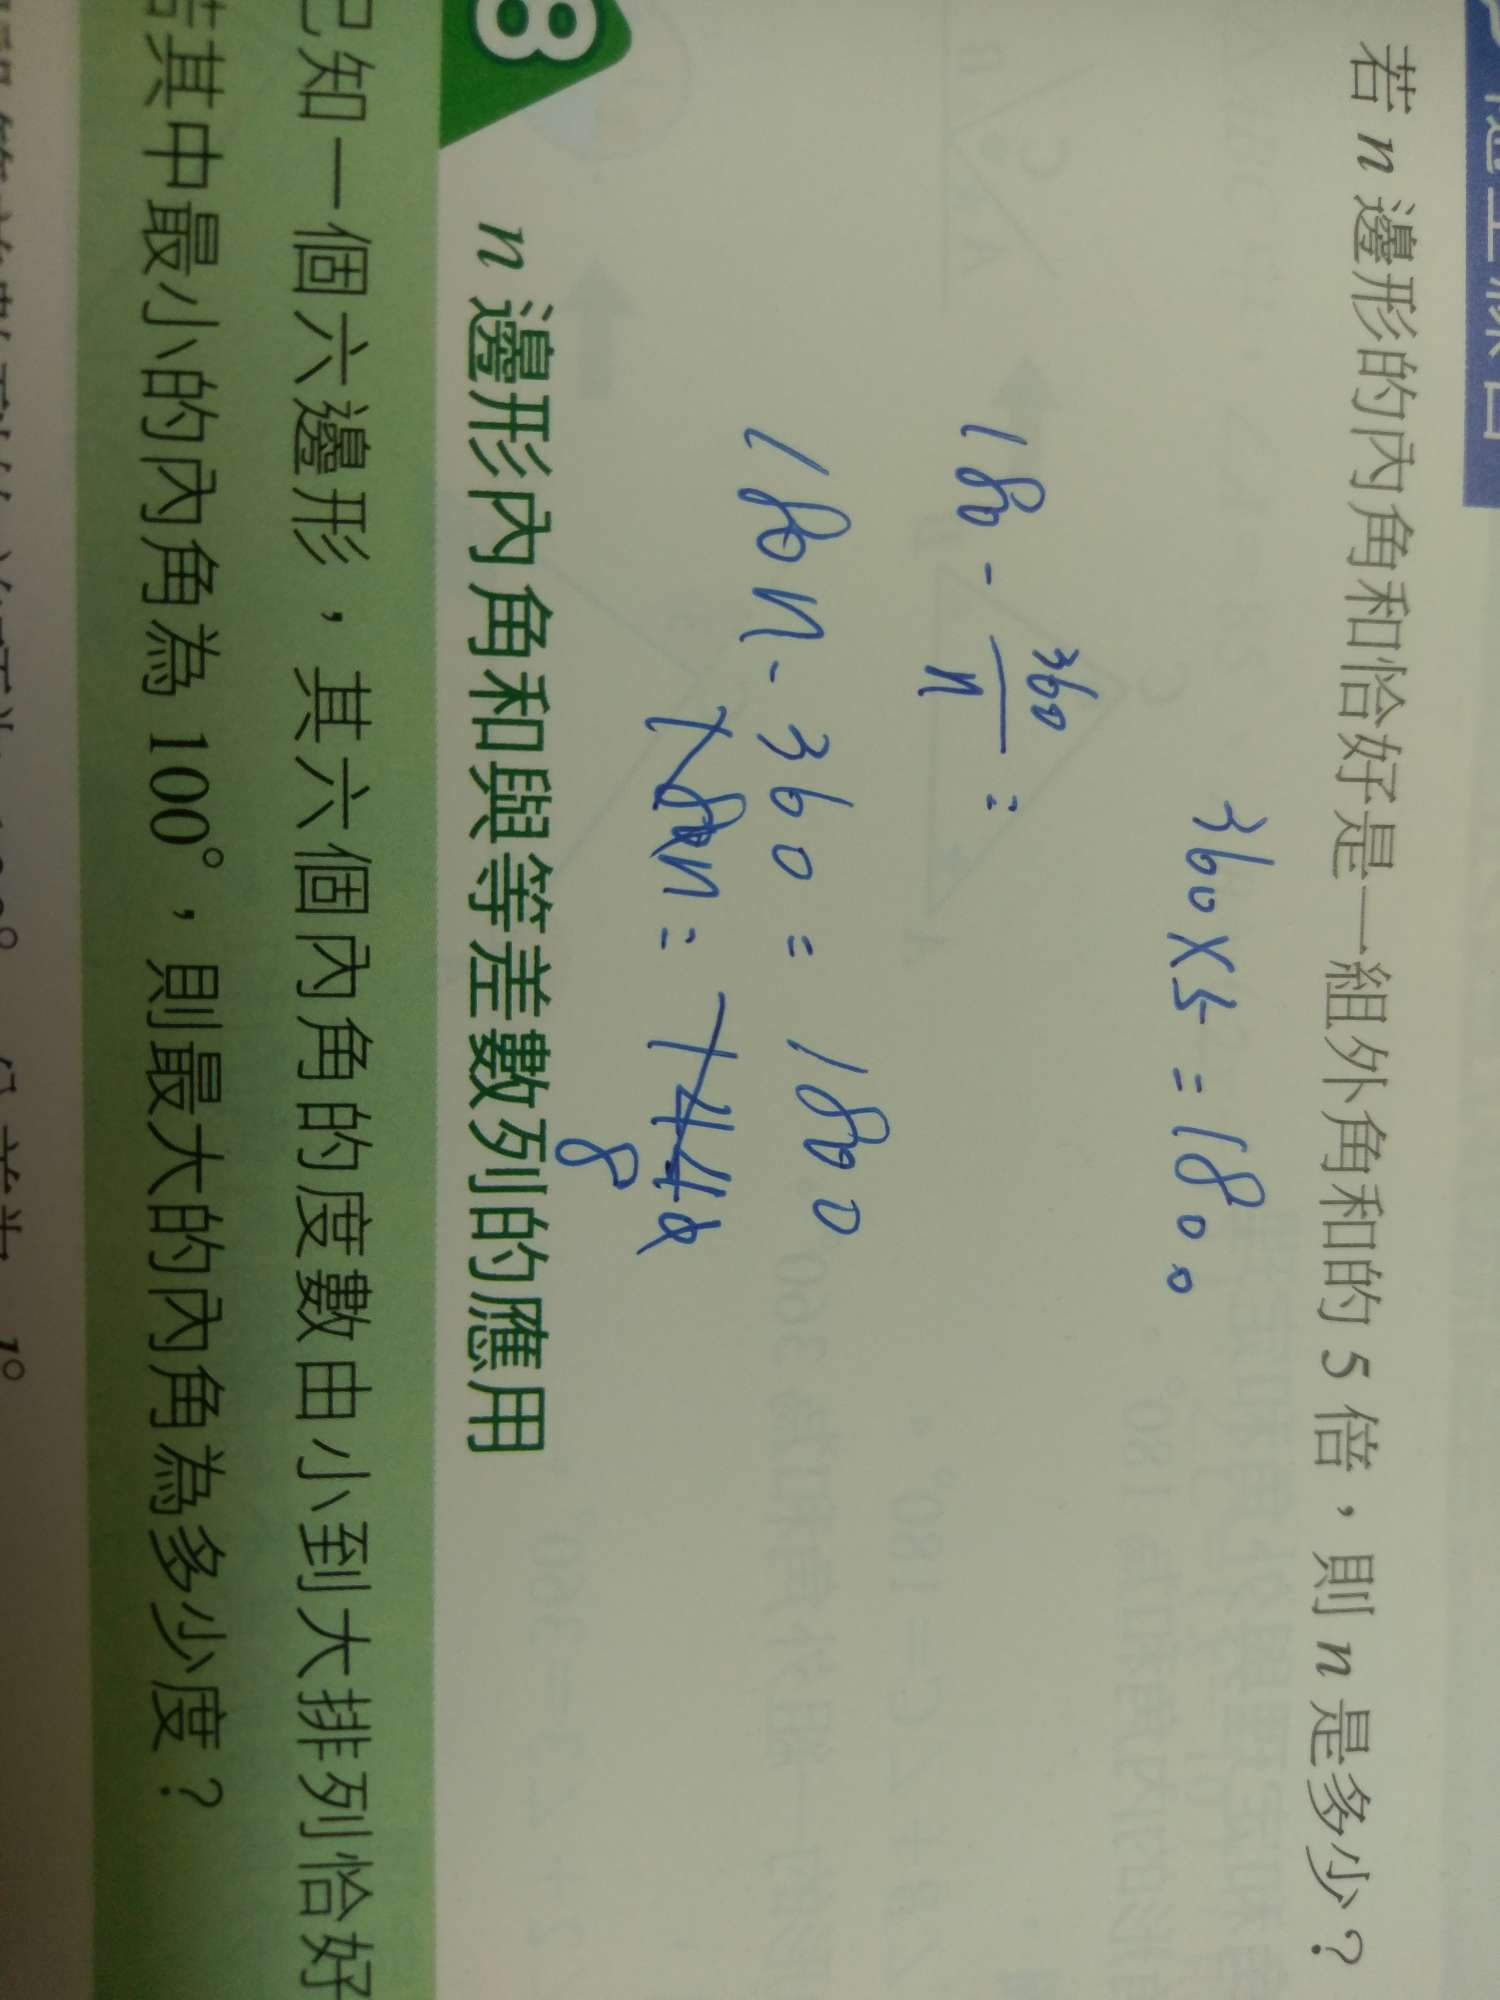 若 n 邊形的內角和恰好是一組外角和的 5 倍，則 n 是多少？
360×5=1800
180-360/n=
180n-360=1800
180n=1440
8
8
n 邊形內角和與等差數列的應用
已知一個六邊形，其六個內角的度數由小到大排列恰好
若其中最小的內角為 100°，則最大的內角為多少度？